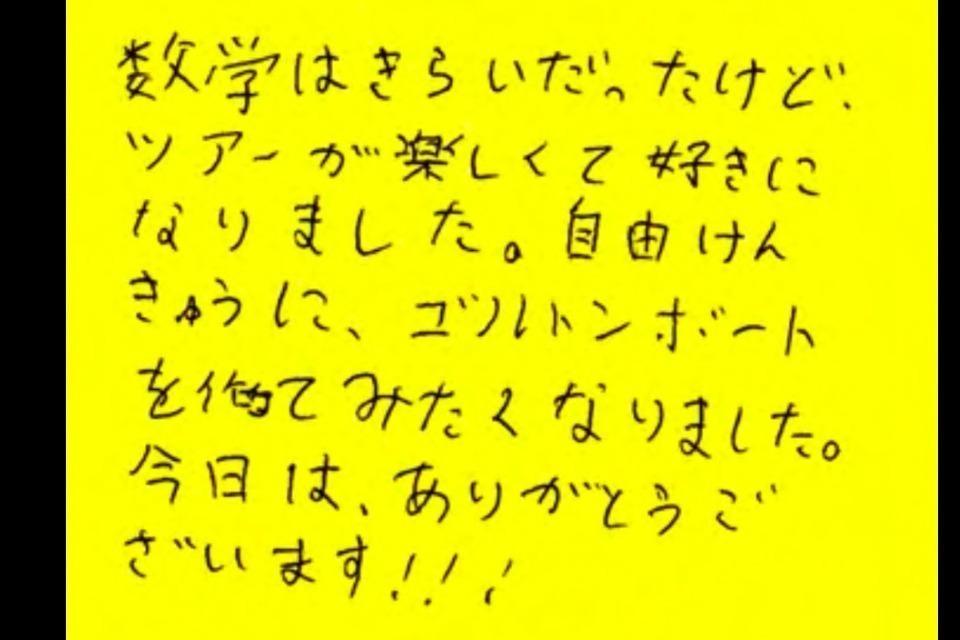 数学はきらいだったけど、
ツアーが楽しくて好きに
なりました。自由けん
きゅうに、ゴルトンボート
を作てみたくなりました。
今日は、ありがとうご
ざいます!!!